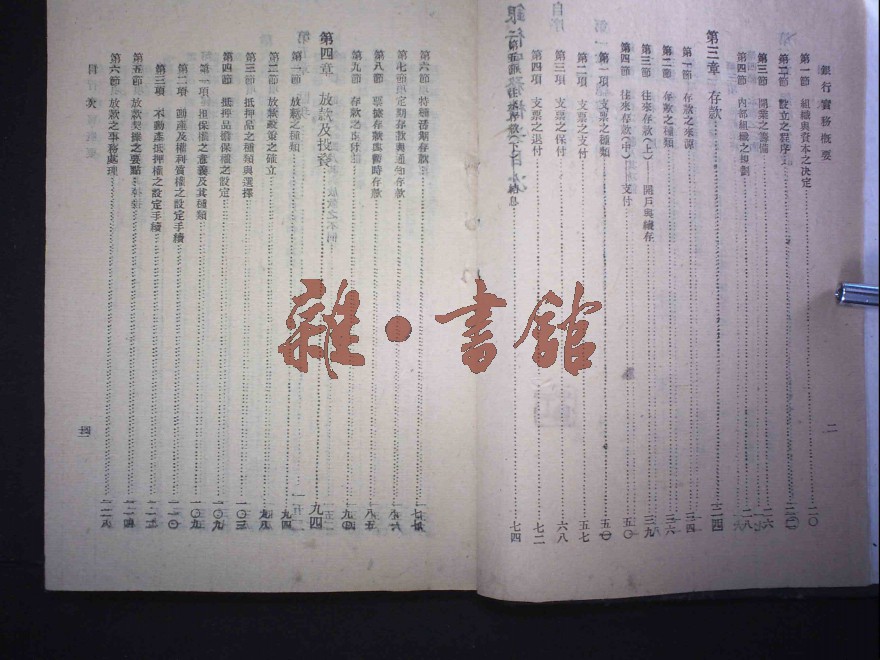 銀行實務概要
二
第一節 組織與資本之决定 二〇
第二節 設立之程序
第三節 開業之籌備 二六
第四節 內部組織之規劃 二八
第三章 存款
第一節 存款之來源 三四
第二節 存款之種類 三六
第三節 往來存款(上)——開戶與續存 三九
第四節 往來存款(中) 支付 五〇
第一項 支票之種類 五〇
第二項 支票之支付 五七
第三項 支票之保付 六八
第四項 支票之退付 七二
第五節 往來存款(下) 息 七四
第六節 特種活期存款 七七
第七節 定期存款與通知存款
第八節 票據存款與暫時存款 八五
第九節 存款之準付 九〇
第四章 放款及投資 九四
第一節 放款之種類 九四
第二節 放款政策之確立 九八
第三節 抵押品之種類與選擇 一〇三
第四節 抵押品擔保權之設定 一〇九
第一項 担保權之意義及其種類 一〇九
第二項 動產及權利質權之設定手續 一一〇
第三項 不動產抵押權之設定手續
第五節 放款契據之要點
第六節 放款之事務處理
目次
雜·書館